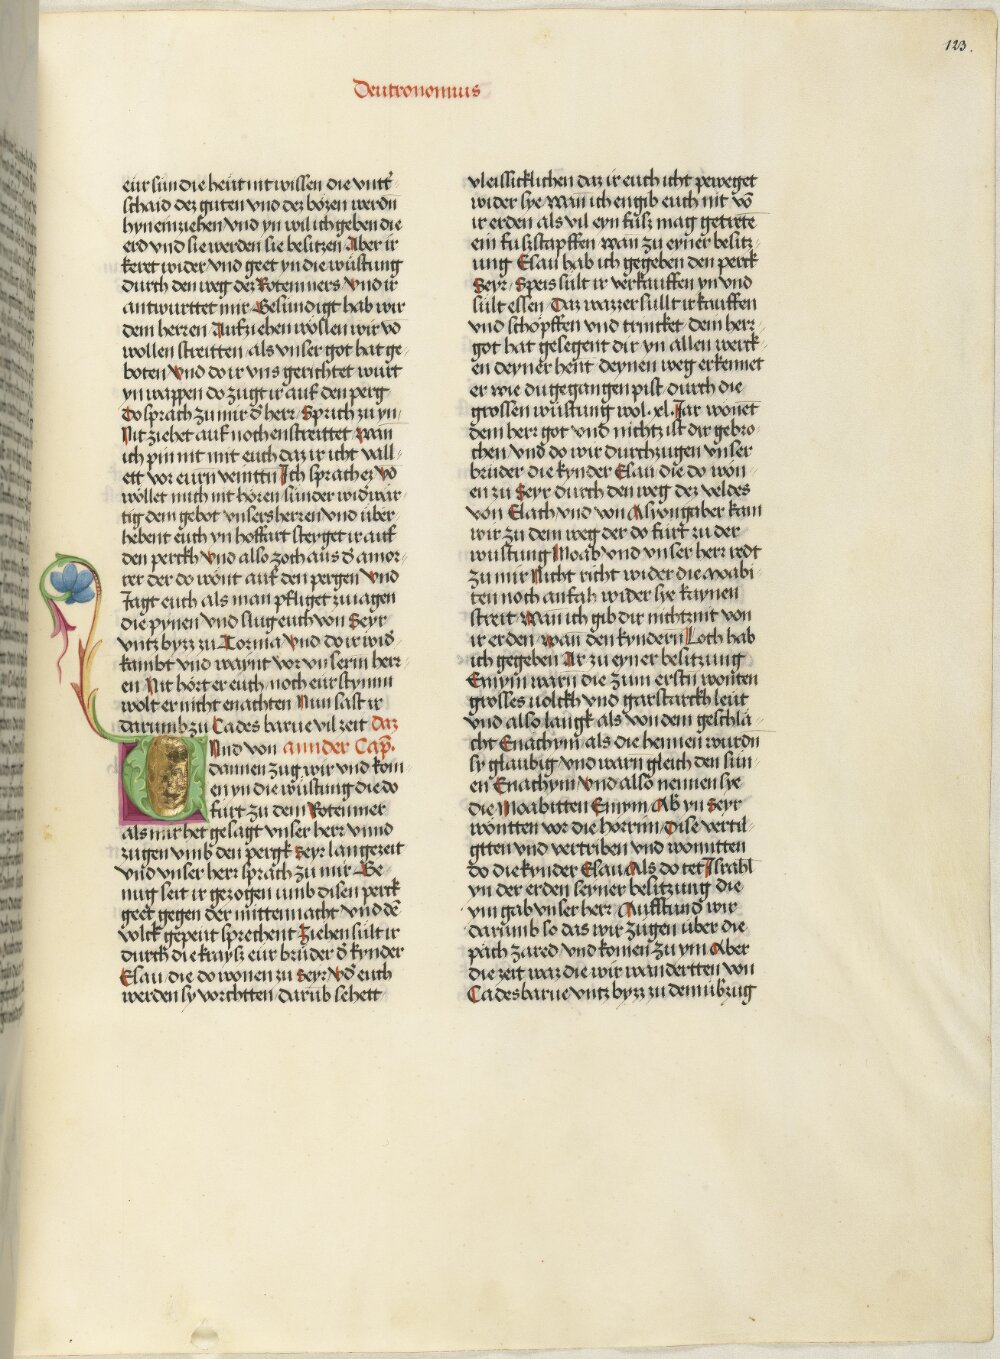 123.
Deutronomius
eur sun die heut nit wissen die vntt̄
schaid dez guten vnd dez bözen werdn
hyneinziehen vnd yn wil ich geben die
erd vnd sie werden sie besitzen Aber ir
keret wider vnd geet yn die wüstung
durch den weg dez Rotenmers Vnd ir
antwurttet mir Gesündigt hab wir
dem herren Aufziehen wöllen wir vō
wollen streitten als vnser got hat ge-
boten Vnd do ir vns gerichtet wurt
yn wappen do zugt ir auf den perg
Do sprach zu mir d̄ herr Sprich zu yn
Nit ziehet auf noch enstreittet Wan
ich pin nit mit euch daz ir icht vall-
ett vor eurn veinttn Ich sprach ez Vō
wöllet mich nit hören sunder widwär-
tig dem gebot vnsers herren vnd über
hebent euch yn hoffart steyget ir auf
den perckh Vnd also zoch aus d̄ amor-
rer der do wont auf den pergen Vnd
Jagt euch als man pfliget zu iagen
die pynen vnd slug euch von Seyr
vntz byzz zu Hormia Vnd do ir wid
kambt vnd waynt vor vnserm herr-
en Nit hört er euch noch eur stymm
wolt er nicht enachten Nun sast ir
darumb zu Cades barue vil zeit Daz
Und von annder Cap̄.
dannen zug wir vnd kom-
en yn die wüstung die do
fürt zu dem Rotenmer
als mir het gesagt vnser herr vnnd
zugen vmb den pergk Seyr lange zeit
vnd vnser herr sprach zu mir Ge-
nug seit ir gezogen umb disen perck
geet gegen der mitternacht Vnd dē
volck gepeut sprechent Ziehen sült ir
durch die krayß eur brüder d̄ kynder
Esau die do wonen zu Seyr Vd̄ euch
werden sy vorchtten darūb sehett
vleissicklichen daz ir euch icht peweget
wider sye Wan ich engib euch nit vō
ir erden als vil eyn fuß mag getrete
ein fußstapffen wan zu eyner besitz-
ung Esau hab ich gegeben den perck
Seyr Speis sült ir verkauffen yn vnd
sült essen Daz wazzer süllt ir kauffen
vnd schöpffen vnd trincket dem herr-
got hat gesegent dir yn allen werck-
en deyner hent deynen weg erkennet
er wie du gegangen pist durch die
grossen wüstung wol .xl. Jar wonet
dem herr got vnd nichtz ist dir gebro-
chen vnd do wir durchzugen vnser
brüder die kynder Esau die do won-
en zu Seyr durch den weg dez veldes
von Elach vnd von Asyongaber kam
wir zu dem weg der do fürt zu der
wüstung Moab vnd vnser herr redt
zu mir Nicht richt wider die Moabi-
ten noch anfah wider sye kaynen
streit Wan ich gib dir nichtznit von
ir erden Wan den kyndern Loth hab
ich gegeben Ar zu eyner besitzung
Emym warn die zum erstn wonten
grosses volckh vnd gar starckh leut
vnd also langk als von dem geschlä-
cht Enachym als die hennen wurdn
sy glaubig vnd warn gleich den sün-
en Enachym Vnd also nennen sye
die Moabitten Emym Ab yn Seyr
wontten vor die horrim Dise vertil-
gtten vnd vertriben vnd wonntten
do die kynder Esau Als do tet Israhl
yn der erden seyner besitzung die
ym gab vnser herr Aufstund wir
darumb so das wir zugen über die
päch Zared vnd komen zu ym Aber
die zeit waz die wir wandertten von
Cadesbarue vntz byzz zu dem übzug